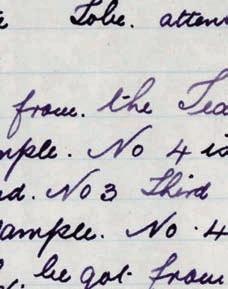 Tobe. atten
from. the Tea
mple. No 4 is
d. No 3 Third
ample. No. 4
be got from